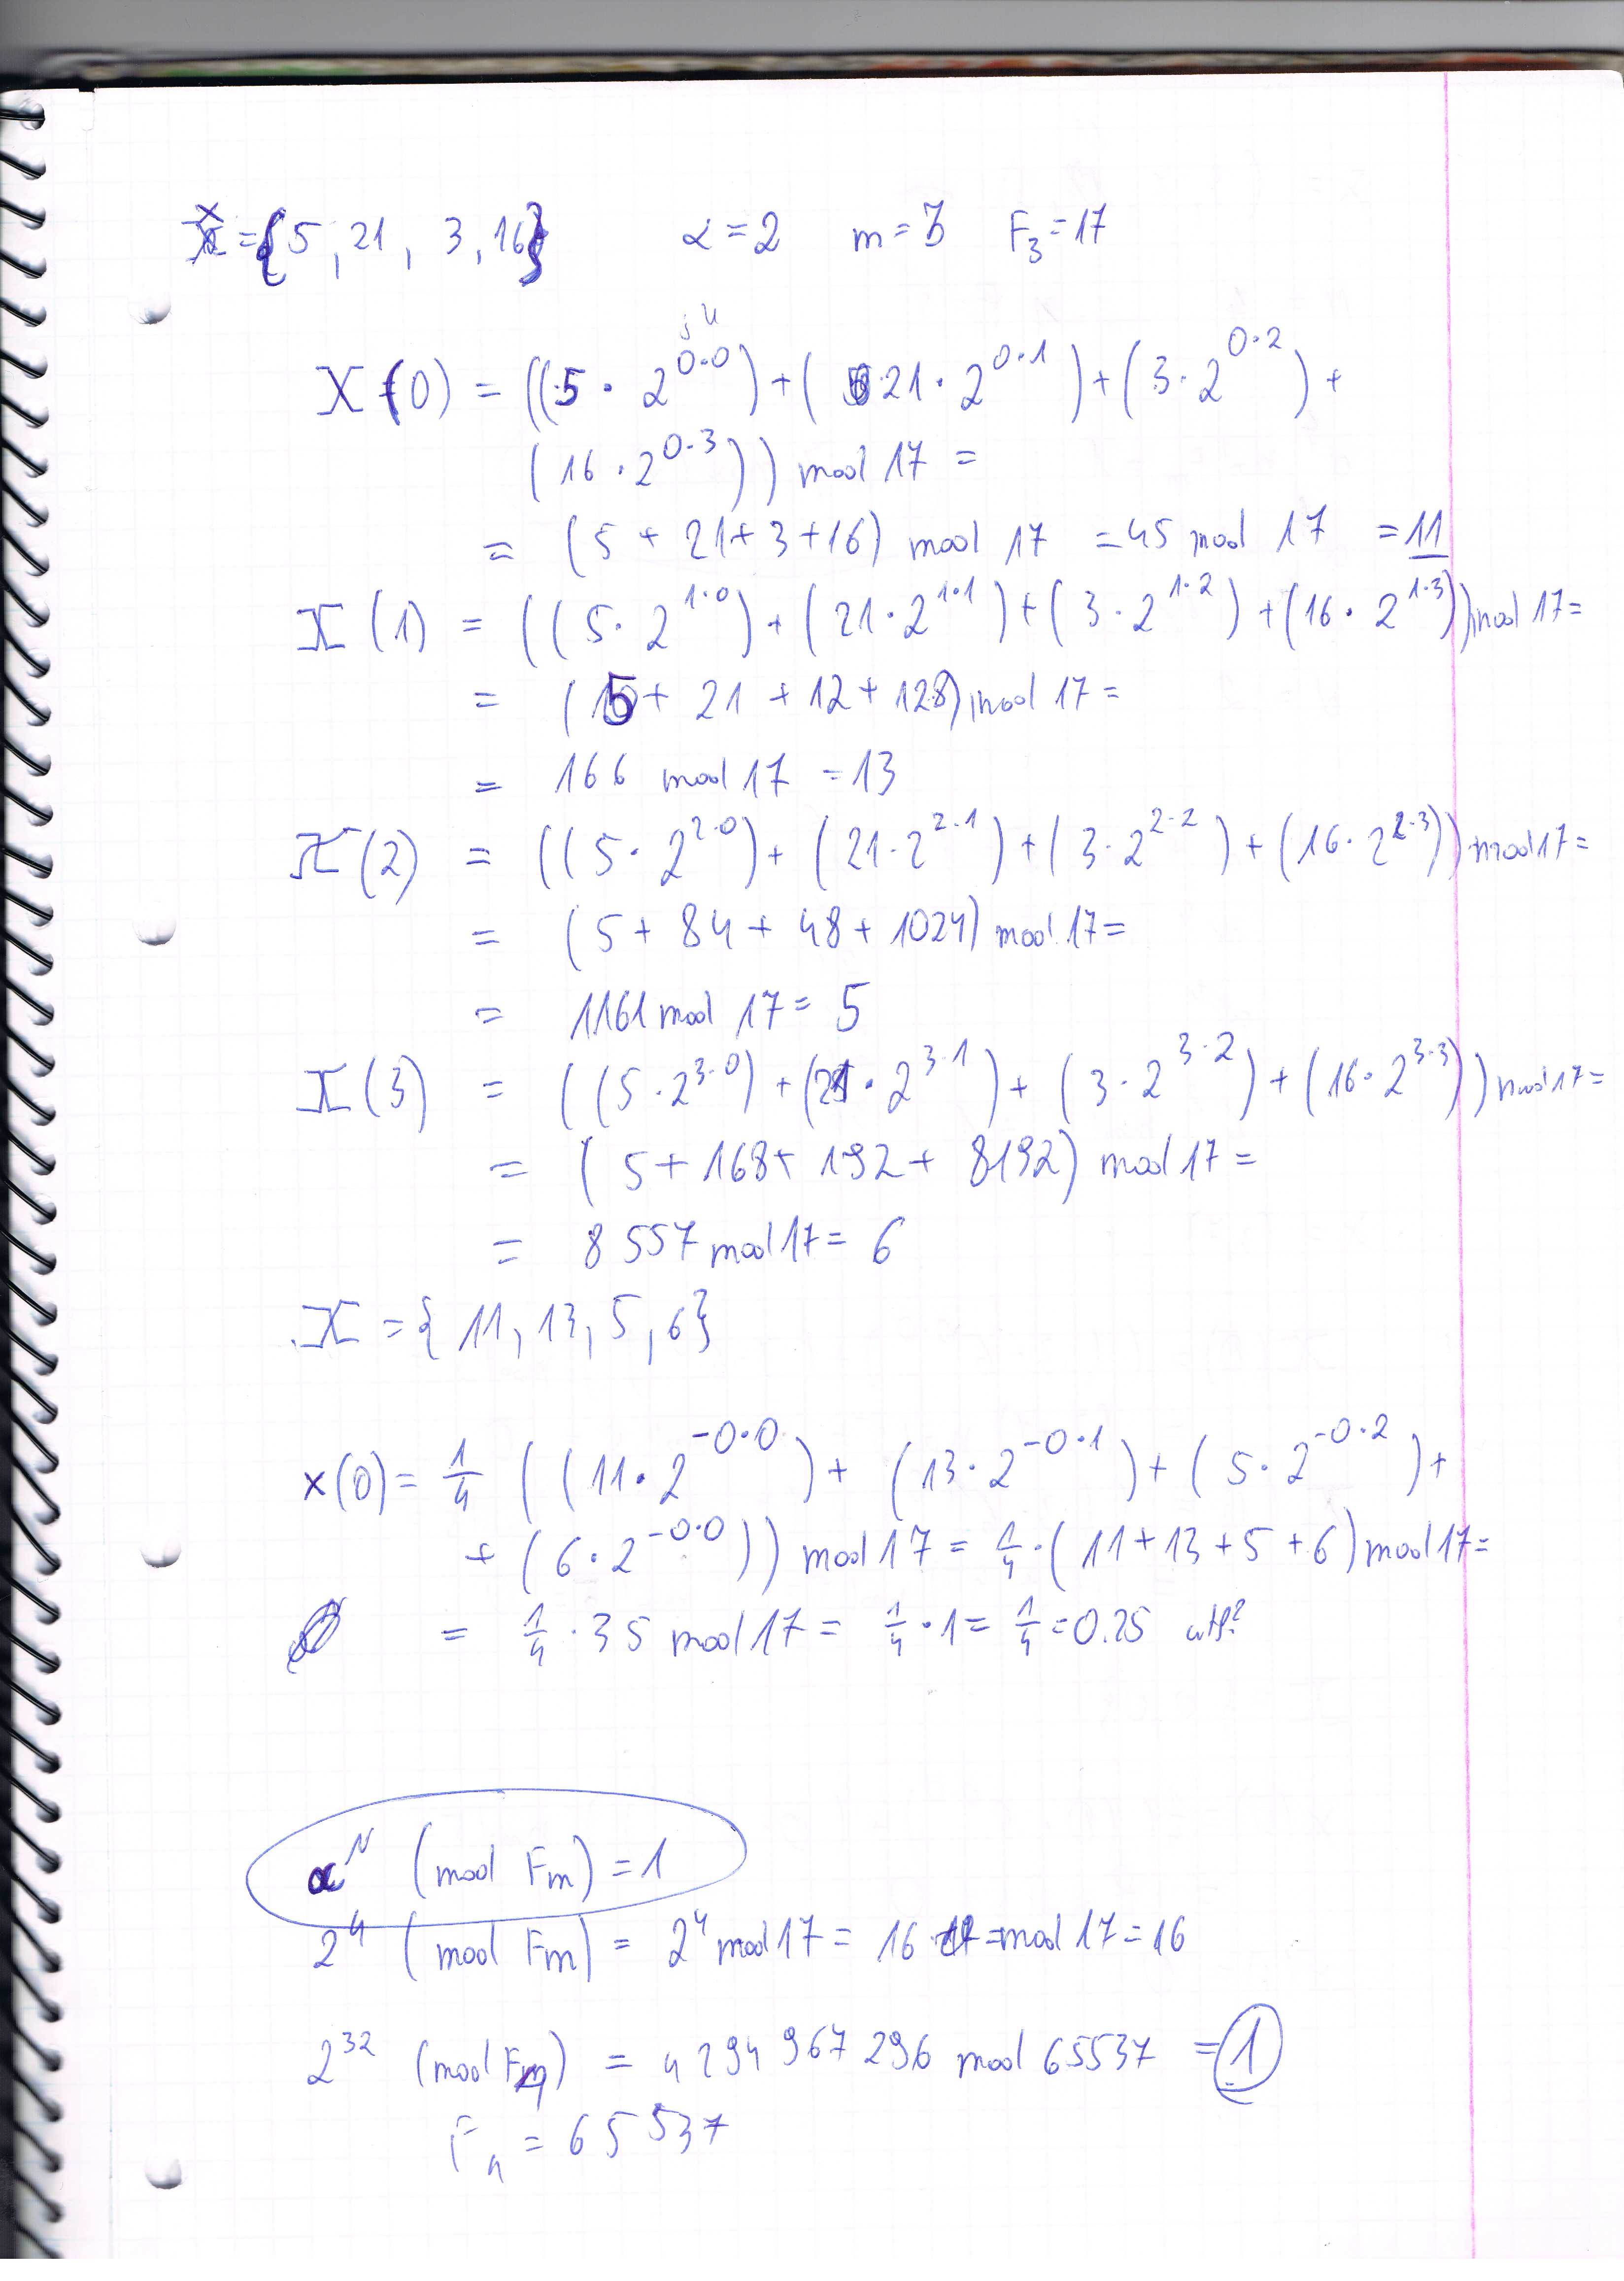 x = {5, 21, 3, 16} α = 2 m = 3 F₃ = 17
j k
X(0) = ((5 · 2^{0·0}) + (21 · 2^{0·1}) + (3 · 2^{0·2}) +
(16 · 2^{0·3})) mod 17 =
= (5 + 21 + 3 + 16) mod 17 = 45 mod 17 = 11
X(1) = ((5 · 2^{1·0}) + (21 · 2^{1·1}) + (3 · 2^{1·2}) + (16 · 2^{1·3})) mod 17 =
= (5 + 21 + 12 + 128) mod 17 =
= 166 mod 17 = 13
X(2) = ((5 · 2^{2·0}) + (21 · 2^{2·1}) + (3 · 2^{2·2}) + (16 · 2^{2·3})) mod 17 =
= (5 + 84 + 48 + 1024) mod 17 =
= 1161 mod 17 = 5
X(3) = ((5 · 2^{3·0}) + (21 · 2^{3·1}) + (3 · 2^{3·2}) + (16 · 2^{3·3})) mod 17 =
= (5 + 168 + 192 + 8192) mod 17 =
= 8 557 mod 17 = 6
X = {11, 13, 5, 6}
x(0) = 1/4 ((11 · 2^{-0·0}) + (13 · 2^{-0·1}) + (5 · 2^{-0·2}) +
+ (6 · 2^{-0·0})) mod 17 = 1/4 · (11 + 13 + 5 + 6) mod 17 =
= 1/4 · 35 mod 17 = 1/4 · 1 = 1/4 = 0.25 wtf?
α^N (mod Fm) = 1
2^4 (mod Fm) = 2^4 mod 17 = 16 = mod 17 = 16
2^{32} (mod F₄) = 4 294 967 296 mod 65537 = 1
F₄ = 65 537